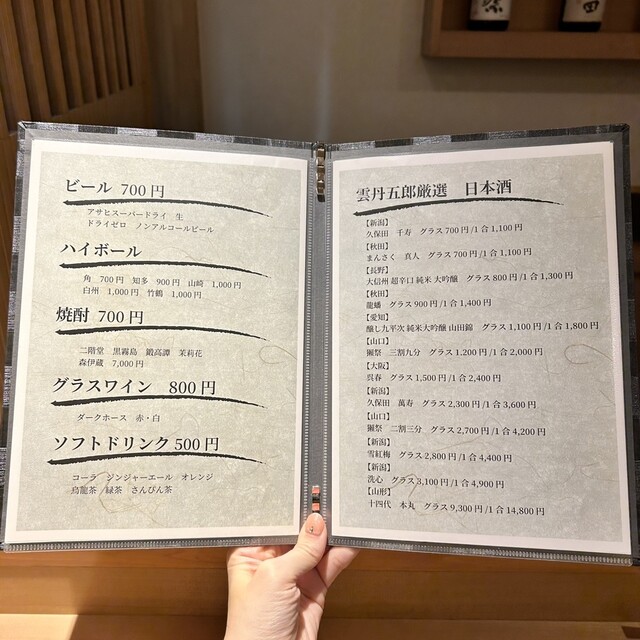 ビール 700円
アサヒスーパードライ 生
ドライゼロ ノンアルコールビール
ハイボール
角 700円 知多 900円 山崎 1,000円
白州 1,000円 竹鶴 1,000円
焼酎 700円
二階堂 黒霧島 鍛高譚 茉莉花
森伊蔵 7,000円
グラスワイン 800円
ダークホース 赤・白
ソフトドリンク 500円
コーラ ジンジャーエール オレンジ
烏龍茶 緑茶 さんぴん茶
雲丹五郎厳選 日本酒
【新潟】
久保田 千寿 グラス 700円/1合 1,100円
【秋田】
まんさく 真人 グラス 700円/1合 1,100円
【長野】
大信州 超辛口 純米 大吟醸 グラス 800円/1合 1,300円
【秋田】
龍蟠 グラス 900円/1合 1,400円
【愛知】
醸し九平次 純米大吟醸 山田錦 グラス 1,100円/1合 1,800円
【山口】
獺祭 三割九分 グラス 1.200円/1合 2,000円
【大阪】
呉春 グラス 1,500円/1合 2,400円
【新潟】
久保田 萬寿 グラス 2,300円/1合 3,600円
【山口】
獺祭 二割三分 グラス 2,700円/1合 4,200円
【新潟】
雪紅梅 グラス 2,800円/1合 4,400円
【新潟】
洗心 グラス 3,100円/1合 4,900円
【山形】
十四代 本丸 グラス 9,300円/1合 14,800円